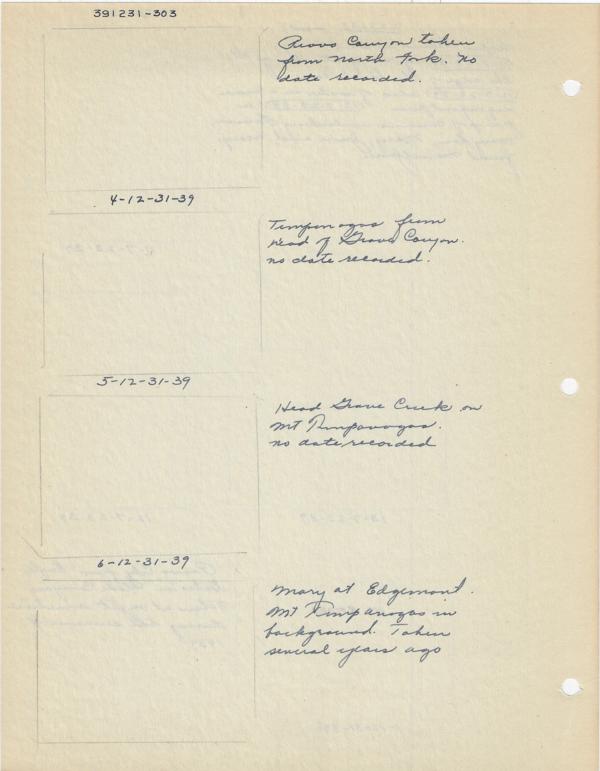 391231-303
Provo Canyon taken
from North Fork. No
date recorded.
4-12-31-39
Timpanogas from
Head of Grove Canyon.
no date recorded.
5-12-31-39
Head Grove Creek on
Mt Timpanogas.
no date recorded
6-12-31-39
Mary at Edgemont.
Mt Timpanogas in
background. Taken
several years ago